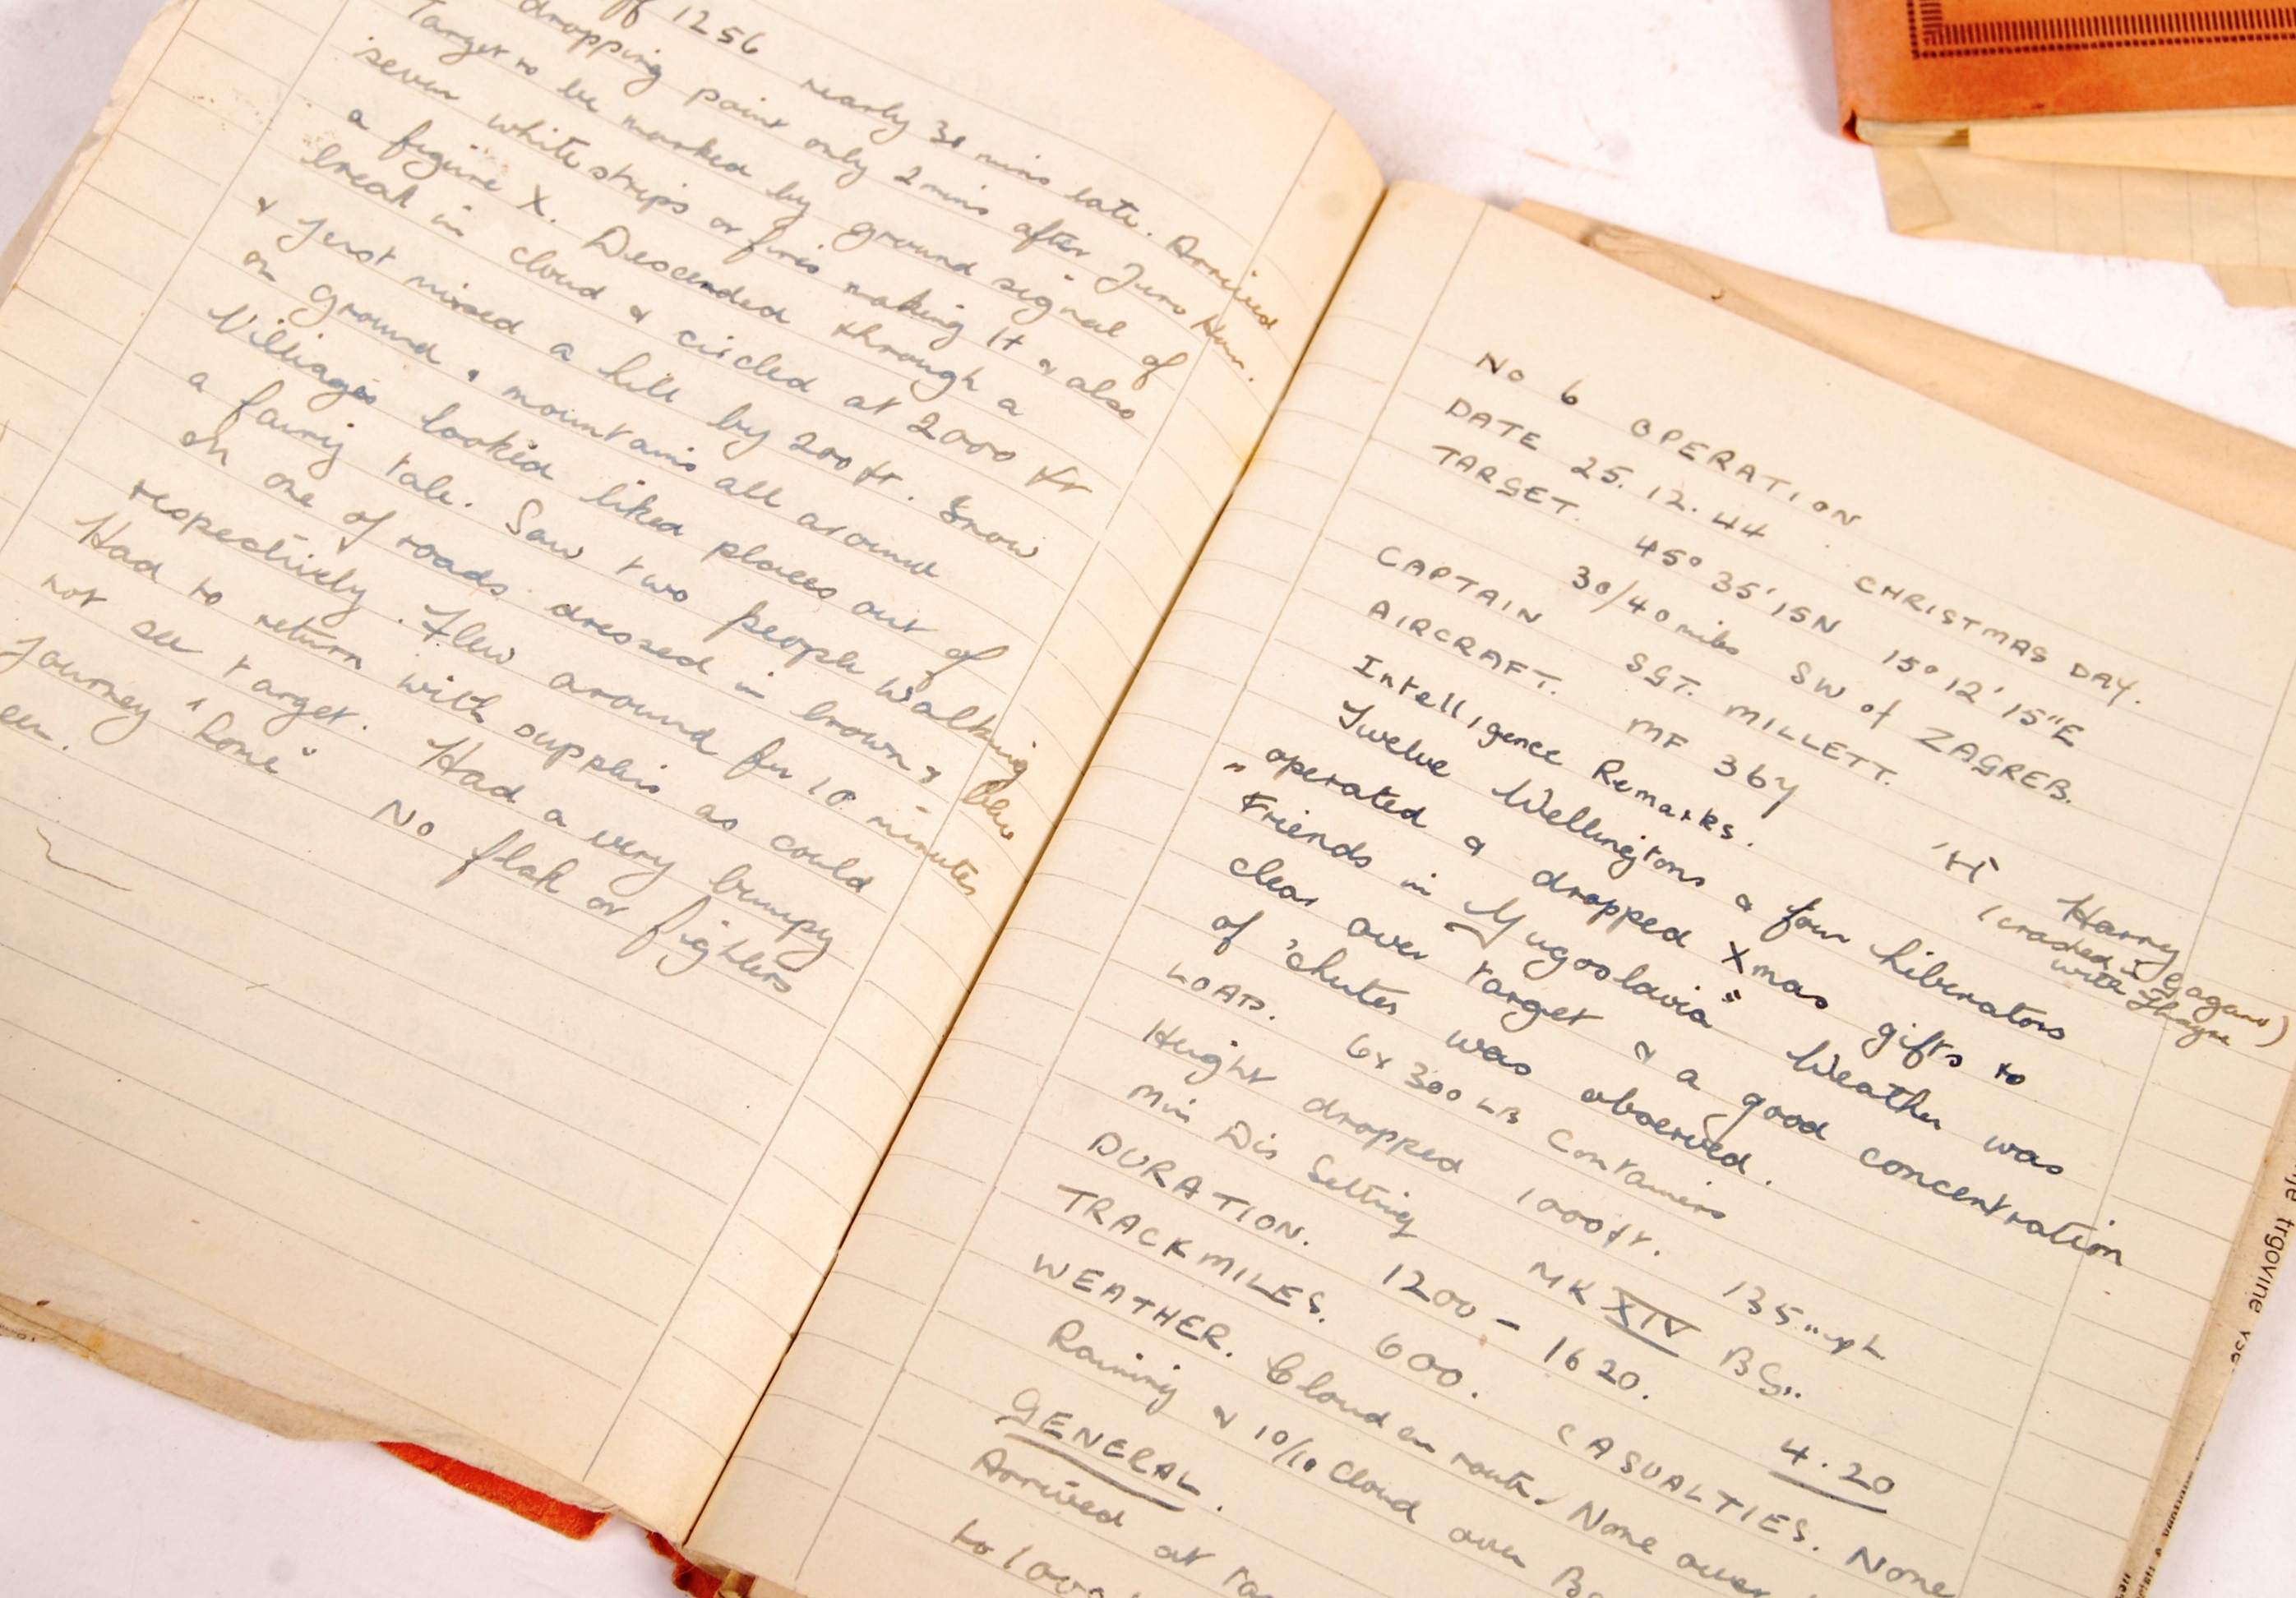 off 1256 nearly 30 mins late. Arrived
dropping point only 2 mins after Juno
Target to be marked by ground signal of
seven white strips or fires making it & also
a figure X. Descended through a
break in cloud & circled at 2000 ft
& just missed a hill by 200 ft. Snow
on ground & mountains all around
Villiages looked liked places out of
a fairy tale. Saw two people walking
on one of roads dressed in brown & blue
respectively. Flew around for 10 minutes
Had to return with supplies as could
not see target. Had a very bumpy
journey "home" No flak or fighters
No 6 OPERATION
DATE 25.12.44 CHRISTMAS DAY.
TARGET. 45° 35' 15N 15° 12' 15"E
30/40 miles SW of ZAGREB.
CAPTAIN SGT. MILLETT.
AIRCRAFT. MF 367 'H' Harry
(crashed Gagano)
with Thayne
Intelligence Remarks.
Twelve Wellingtons & four Liberators
"operated & dropped Xmas gifts to
Friends in Yugoslavia" Weather was
clear over target & a good concentration
of 'chutes was observed.
LOAD. 6x 300 LB Containers
Height dropped 1000ft. 135 mph
Min Dis Setting MK XIV BS..
DURATION. 1200 - 1620. 4.20
TRACK MILES. 600. CASUALTIES. None
WEATHER. Cloud en route. None over
Raining & 10/10 cloud over
GENERAL.
Arrived at
to
trgovine